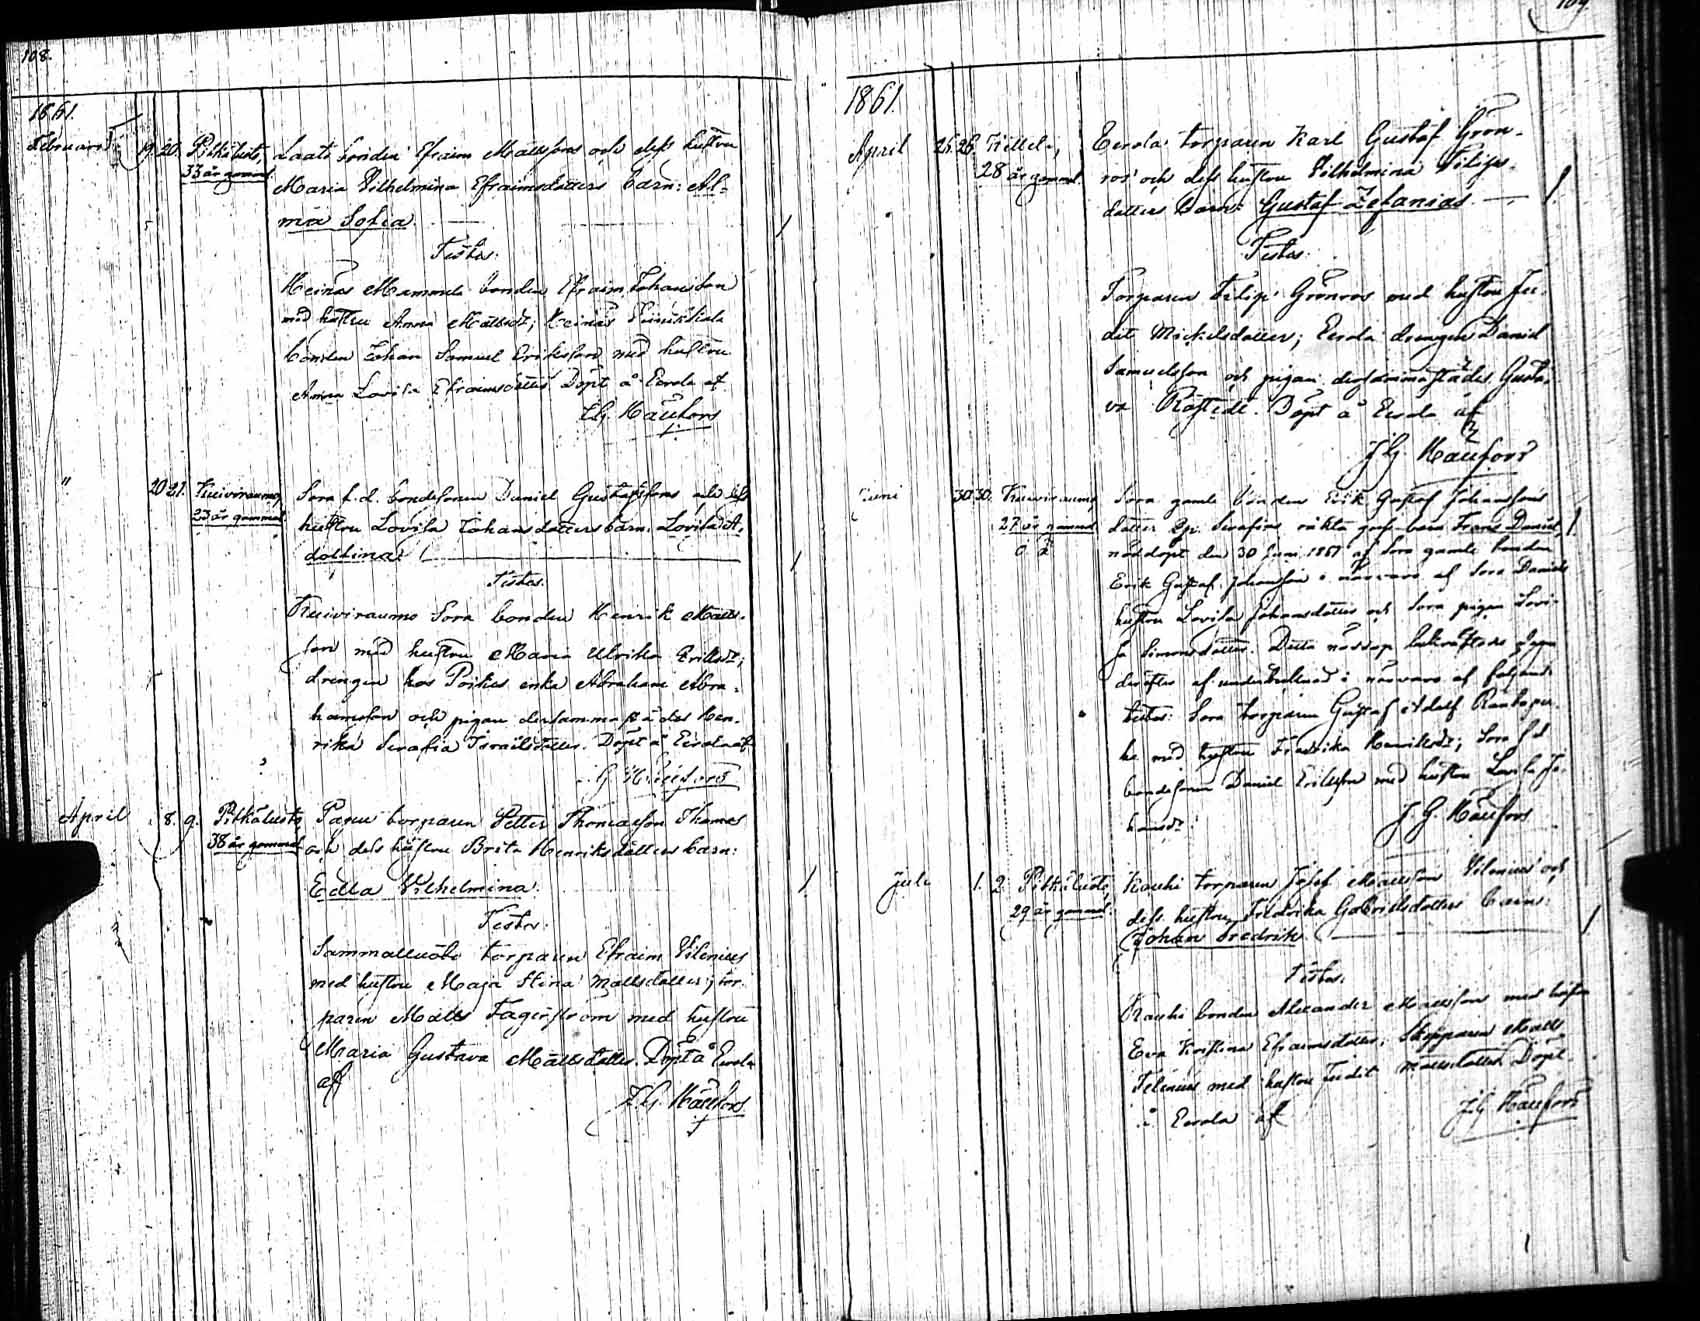 108.
1861.
Februari 19. 20. Pitkäluoto, Laats bonden Efraim Mattssons och dess hustru
33 år gammal. Maria Vilhelmina Efraimsdotters barn: Al-
ma Sofia.
Testes:
Heinäs Mammela bonden Efraim Johansson
med hustru Anna Mattsdr; Heinäs
bonden Johan Samuel Eriksson med hustru
Anna Lovisa Efraimsdotter Döpt å Eerola af
" 20 21. Kuiviraumo, Sora f.d. bondesonen Daniel Gustafssons och dess
23 år gammal. hustru Lovisa Johansdotters barn: Lovisa A-
dolfina.
Testes:
Kuiviraumo Sora bonden Henrik Matts-
son med hustru Maria Ulrika Eriksdr;
drengen hos Poikus enka Abraham Abra-
hamsson och pigan dersammastädes Hen-
rika Serafia Israelsdotter. Döpt å Eerola af
April 8. 9. Pitkäluoto, Panu torparen Petter Thomasson Thomas
38 år gammal. och dess hustru Brita Henriksdotters barn:
Edla Vilhelmina.
Testes:
Sammalluoto torparen Efraim Vilenius
med hustru Maja Stina Mattsdotter; tor-
paren Matts Fagerström med hustru
Maria Gustava Mattsdotter. Döpt å Eerola
af
109.
1861.
April 25. 26. 28 år gammal. Eerola torparen Karl Gustaf Grön-
ros' och dess hustru Vilhelmina Filips-
dotters barn: Gustaf Zefanias.
Testes:
Torparen Filip Grönros med hustru Ju-
dit Mickelsdotter; Eerola drengen Daniel
Samuelsson och pigan dersammastädes Gusta-
va. Döpt å Eerola af
Juni 30. 30. Kuiviraumo, Sora gamle bonden Erik Gustaf Johanssons
27 år gammal. dotter Serafinas oäkta gosse barn Frans Daniel,
o. ä. nöddöpt den 30 Juni 1861 af Sora gamle bonden
Erik Gustaf Johansson i närvaro af Sora Daniels
hustru Lovisa Johansdotter och Sora pigan Lovi-
sa Simonsdotter. Detta nöddop bekräftades
derefter af undertecknad i närvaro af följande
testes: Sora torparen Gustaf Adolf
med hustru Fredrika Henriksdr; Sora f.d.
bondesonen Daniel Eriksson med hustru Lovisa Jo-
hansdr.
Juli 1. 2. Pitkäluoto, Kauhi torparen Josef Mattsson Vilenius och
29 år gammal. dess hustru Fredrika Gabrielsdotters barn:
Johan Fredrik.
Testes.
Kauhi bonden Alexander Mattsson med hustru
Eva Kristina Efraimsdotter; Skepparen Matts
med hustru Judit Mattsdotter. Döpt
å Eerola af